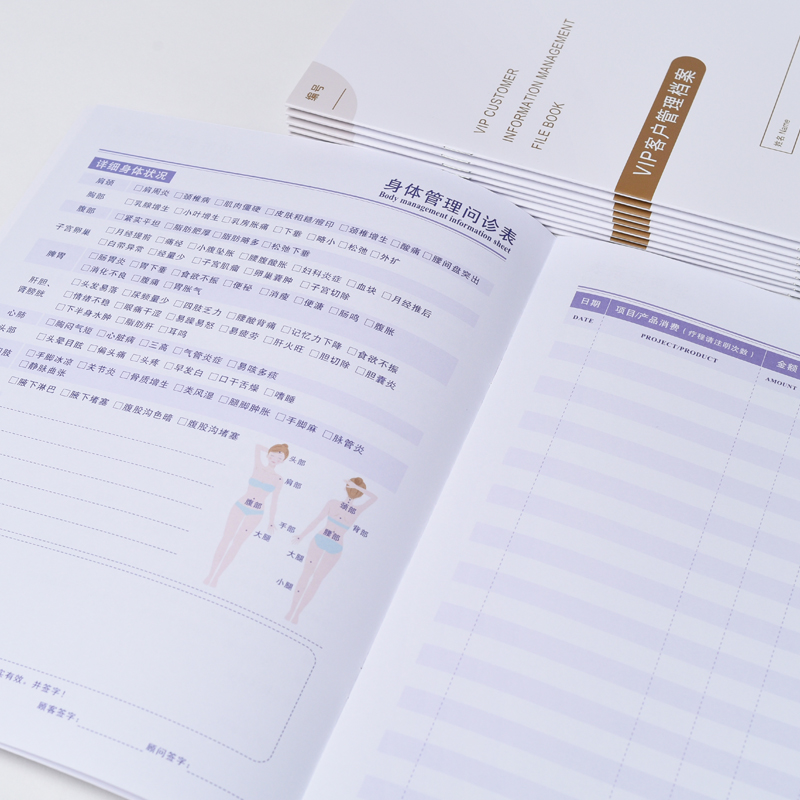 编号
VIP CUSTOMER
INFORMATION MANAGEMENT
FILE BOOK
VIP客户管理档案
姓名 Name
身体管理问诊表
Body management information sheet
详细身体状况
肩颈 □肩周炎 □颈椎病 □肌肉僵硬 □皮肤粗糙/滞印 □颈椎增生 □酸痛 □腰间盘突出
胸部 □乳腺增生 □小叶增生 □乳房胀痛 □下垂 □略小 □松弛 □外扩
腹部 □紧实平坦 □脂肪肥厚 □脂肪略多 □松弛下垂
子宫卵巢 □月经提前 □痛经 □小腹坠胀 □腰腹酸胀 □妇科炎症 □血块 □月经推后
□白带异常 □经量少 □子宫肌瘤 □卵巢囊肿 □子宫切除
脾胃 □肠胃炎 □胃下垂 □食欲不振 □便秘 □消瘦 □便溏 □肠鸣 □腹胀
□消化不良 □腹痛 □胃胀气
肝胆、 □头发易落 □尿频量少 □四肢乏力 □腰酸背痛 □记忆力下降 □食欲不振
肾膀胱 □情绪不稳 □眼痛干涩 □易躁易怒 □易疲劳 □肝火旺 □胆切除 □胆囊炎
□下半身水肿 □脂肪肝 □耳鸣
心肺 □胸闷气短 □心脏病 □三高 □气管炎症 □易咳多痰
头部 □头晕目眩 □偏头痛 □头疼 □早发白 □口干舌燥 □嗜睡
肢 □手脚冰凉 □关节炎 □骨质增生 □类风湿 □腿脚肿胀 □手脚麻 □脉管炎
□静脉曲张
□腋下淋巴 □腋下堵塞 □腹股沟色暗 □腹股沟堵塞
头部
肩部
腹部
手部
大腿
颈部
背部
腰部
大腿
小腿
实有效，并签字！
顾客签字：
顾问签字：
日期
DATE
项目/产品消费（疗程请注明次数）
PROJECT/PRODUCT
金额
AMOUNT